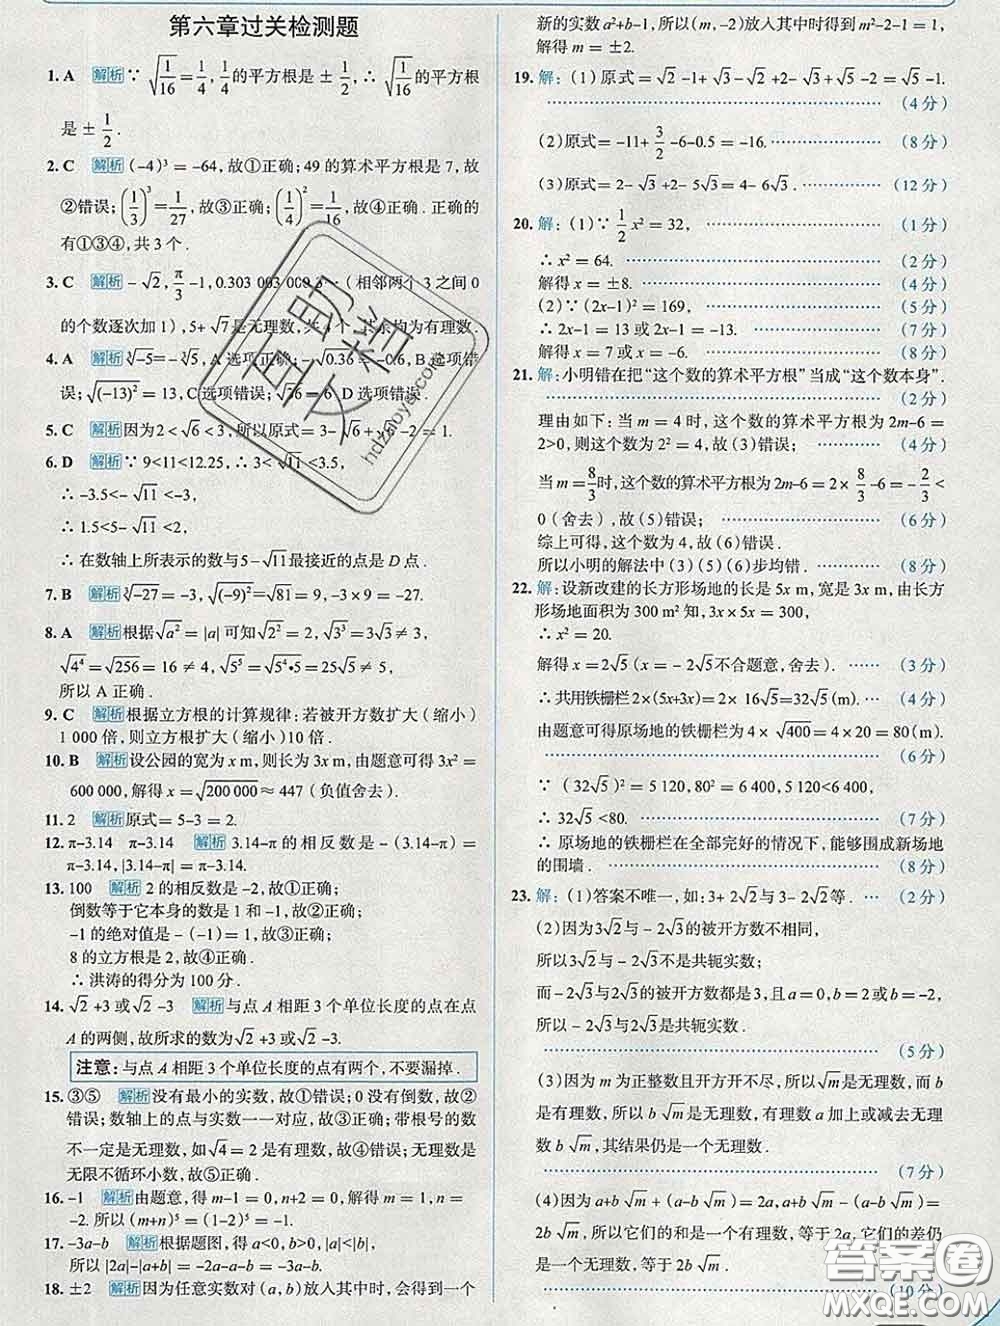 第六章过关检测题
1. A 解析 ∵ √(1/16) = 1/4, 1/4的平方根是 ± 1/2, ∴ √(1/16)的平方根
是 ± 1/2 .
2. C 解析 (-4)³ = -64, 故①正确; 49 的算术平方根是 7, 故
②错误; (1/3)³ = 1/27, 故③正确; (1/4)² = 1/16, 故④正确 . 正确的
有①③④, 共 3 个 .
3. C 解析 -√2, π/3 -1, 0.303 003 000 3 ( 相邻两个 3 之间 0
的个数逐次加 1 ), 5+ √7是无理数, 共 4 个, 其余均为有理数.
4. A 解析 ∛-5 = -∛5, A 选项正确; -√0.36 = -0.6, B 选项错
误; √(-13)² = 13, C 选项错误; √36 = 6, D 选项错误.
5. C 解析 因为 2 < √6 < 3, 所以原式 = 3- √6 + √6 -2 = 1.
6. D 解析 ∵ 9<11<12.25, ∴ 3< √11 <3.5,
∴ -3.5<- √11 <-3,
∴ 1.5<5- √11 <2,
∴ 在数轴上所表示的数与5-√11最接近的点是 D 点 .
7. B 解析 ∛-27 = -3, √(-9)² = √81 = 9, -3 × 9 = -27.
8. A 解析 根据√a² = |a| 可知√2² = 2, √3³ = 3√3 ≠ 3,
√4⁴ = √256 = 16 ≠ 4, √5⁵ = √5⁴•5 = 25√5 ≠ 5,
所以 A 正确 .
9. C 解析 根据立方根的计算规律: 若被开方数扩大 ( 缩小 )
1 000 倍, 则立方根扩大 ( 缩小 )10 倍.
10. B 解析 设公园的宽为 x m, 则长为 3x m, 由题意可得 3x² =
600 000, 解得 x = √200 000 ≈ 447 ( 负值舍去 ).
11. 2 解析 原式 = 5-3 = 2.
12. π-3.14 π-3.14 解析 3.14-π 的相反数是 - (3.14-π) =
π-3.14, |3.14-π| = π-3.14.
13. 100 解析 2 的相反数是 -2, 故①正确;
倒数等于它本身的数是 1 和 -1, 故②正确;
-1 的绝对值是 - (-1) = 1, 故③正确;
8 的立方根是 2, 故④正确.
∴ 洪涛的得分为 100 分 .
14. √2 +3 或√2 -3 解析 与点 A 相距 3 个单位长度的点在点
A 的两侧, 故所求的数为√2 +3 或√2 -3.
注意: 与点 A 相距 3 个单位长度的点有两个, 不要漏掉 .
15. ③⑤ 解析 没有最小的实数, 故①错误; 0 没有倒数, 故②
错误; 数轴上的点与实数一一对应, 故③正确; 带根号的数
不一定是无理数, 如√4 = 2 是有理数, 故④错误; 无理数是
无限不循环小数, 故⑤正确 .
16. -1 解析 由题意, 得 m-1 = 0, n+2 = 0, 解得 m = 1, n =
-2. 所以 (m+n)⁵ = (1-2)⁵ = -1.
17. -3a-b 解析 根据题图, 得 a<0, b>0, |a|<|b|,
所以 |2a|-|a+b| = -2a-a-b = -3a-b.
18. ±2 解析 因为任意实数对 (a, b) 放入其中时, 会得到一个
新的实数 a²+b-1, 所以 (m, -2) 放入其中时得到 m²-2-1 = 1,
解得 m = ± 2.
19. 解: (1) 原式 = √2 -1+ √3 -√2 +2-√3 +√5 -2 = √5 -1.
(4 分)
(2) 原式 = -11+ 3/2 -6-0.5 = -16. (8 分)
(3) 原式 = 2- √3 +2-5√3 = 4-6√3 . (12 分)
20. 解: (1) ∵ 1/2 x² = 32, (1 分)
∴ x² = 64. (2 分)
解得 x = ±8. (4 分)
(2) ∵ (2x-1)² = 169, (5 分)
∴ 2x-1 = 13 或 2x-1 = -13. (7 分)
解得 x = 7 或 x = -6. (8 分)
21. 解: 小明错在把 “这个数的算术平方根” 当成 “这个数本身” .
(2 分)
理由如下: 当 m = 4 时, 这个数的算术平方根为 2m-6 =
2>0, 则这个数为 2² = 4, 故 (3) 错误; (4 分)
当 m = 8/3 时, 这个数的算术平方根为 2m-6 = 2× 8/3 -6 = - 2/3 <
0 (舍去), 故 (5) 错误; (6 分)
综上可得, 这个数为 4, 故 (6) 错误.
所以小明的解法中 (3) (5) (6) 步均错 . (8 分)
22. 解: 设新改建的长方形场地的长是 5x m, 宽是 3x m, 由长方
形场地面积为 300 m² 知, 3x × 5x = 300,
∴ x² = 20.
解得 x = 2√5 (x = - 2√5不合题意, 舍去). (3 分)
∴ 共用铁栅栏 2×(5x+3x) = 2× 16√5 = 32√5 (m). (4 分)
由题意可得原场地的铁栅栏为 4 × √400 = 4 × 20 = 80 (m)
(6 分)
∵ (32√5 )² = 5 120, 80² = 6 400, 5 120<6 400,
∴ 32√5 <80. (7 分)
∴ 原场地的铁栅栏在全部完好的情况下, 能够围成新场地
的围墙 . (8 分)
23. 解: (1) 答案不唯一, 如: 3+ 2√2 与 3- 2√2 等 . (2 分)
(2) 因为 3√2 与 - 2√3 的被开方数不相同,
所以3√2 与 - 2√3不是共轭实数;
而 -2√3 与 2√3的被开方数都是 3, 且 a = 0, b = 2 或 b = -2,
所以 - 2√3 与 2√3是共轭实数.
(5 分)
(3) 因为 m 为正整数且开方开不尽, 所以√m是无理数, 而 b
是有理数, 所以 b √m是无理数, 有理数 a 加上或减去无理
数 b √m, 其结果仍是一个无理数.
(7 分)
(4) 因为 a+b √m + (a-b √m) = 2a, a+b √m - (a-b √m) =
2b √m, 所以它们的和是一个有理数, 等于 2a, 它们的差仍
是一个无理数, 等于 2b √m .
(10 分)
互助
文档
hdzuoye.com
答案圈
MXQE.COM